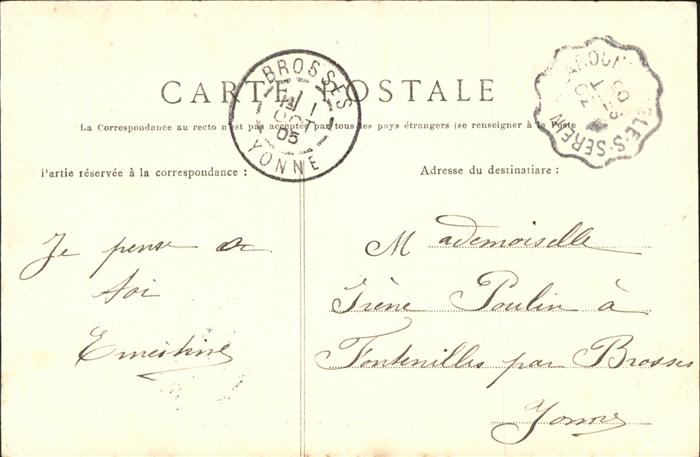 CARTE POSTALE
La Correspondance au recto n'est pas acceptée par tous les pays étrangers (se renseigner à la Poste
BROSSES
1
OCT
05
YONNE
Partie réservée à la correspondance :
Je pense
toi
Ernestine
Adresse du destinatiare :
Mademoiselle
Irène Poulin à
Fontenilles par Brosses
Yonne